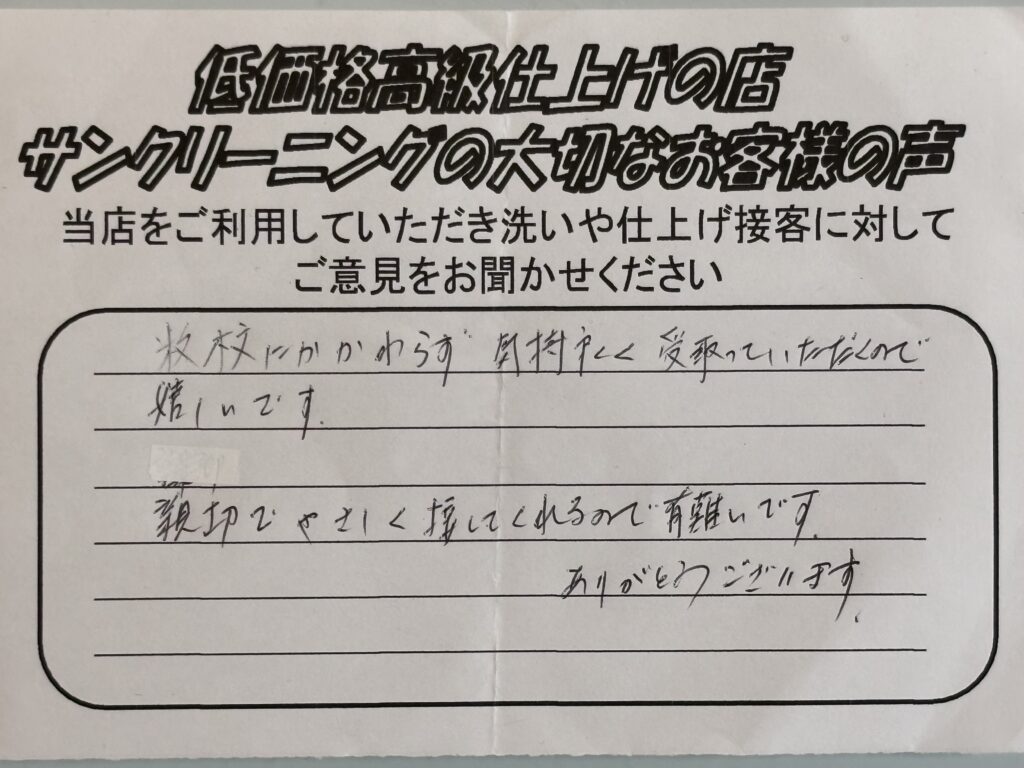 低価格高級仕上げの店
サンクリーニングの大切なお客様の声
当店をご利用していただき洗いや仕上げ接客に対して
ご意見をお聞かせください
枚校にかかわらず 気持よく 受取っていただくので
嬉しいです.
親切でやさしく接してくれるので有難いです.
ありがとうございます.